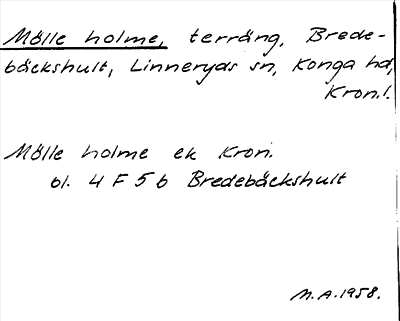 Mölle holme, terräng, Brede-
bäckshult, Linneryds sn, Konga hd,
Kron.l.
Mölle holme ek Kron.
bl. 4 F 5 b Bredebäckshult
M.A. 1958.